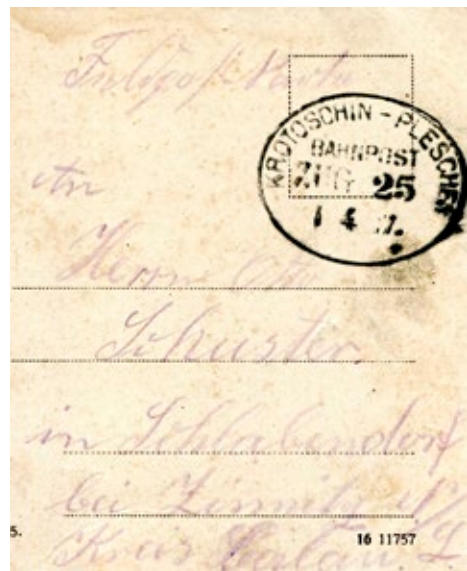 Feldpost Karte
KROTOSCHIN - PLESCHEN
BAHNPOST
ZUG 25
1 4 17.
An
Herrn Otto
Schuster
in Schlabendorf
bei
Kreis Calau.
5.
16 11757